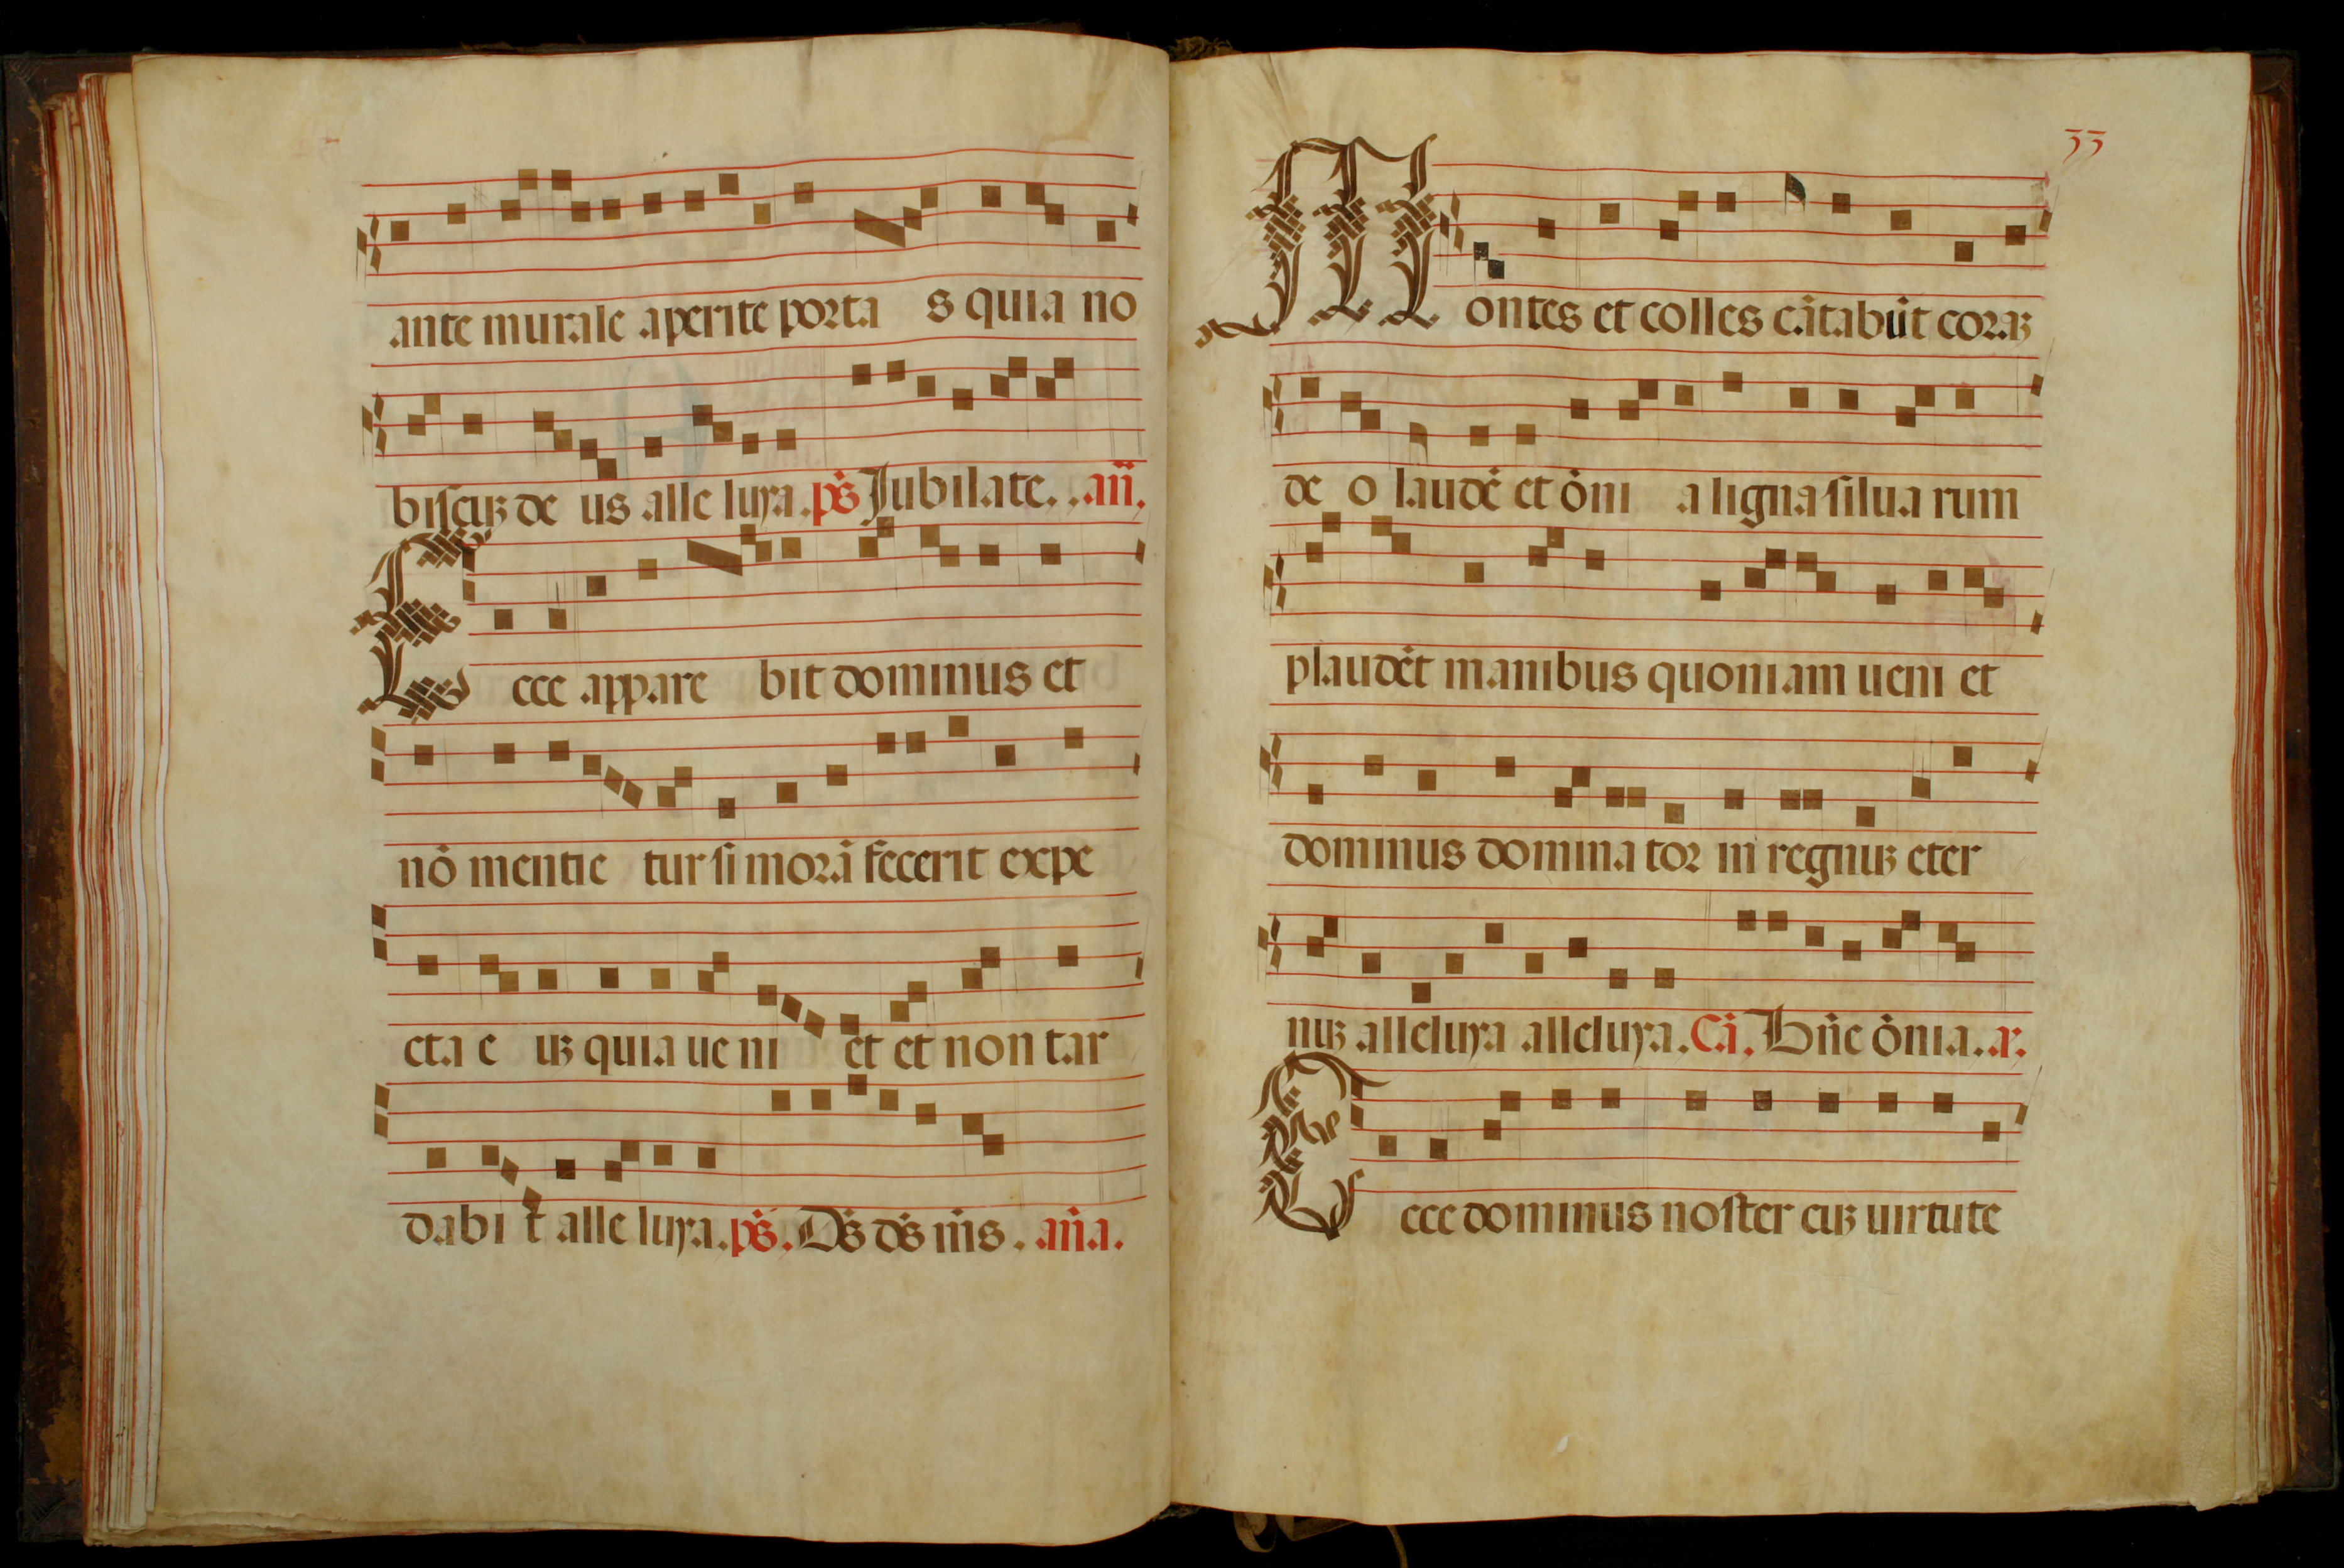 ante murale aperite porta s quia no
biscuʒ de us alle luya. ps̄ Jubilate. .an̄.
Ecce appare bit dominus et
nō mentie tur si morā fecerit expe
cta e uʒ quia ue ni et et non tar
dabi t alle luya. ps̄. Ds̄ ds̄ ms̄. an̄a.
33
Montes et colles cātabūt coraʒ
de o laudē et ōni a ligna silua rum
plaudēt manibus quoniam ueni et
dominus domina tor in regnuʒ eter
nuʒ alleluya alleluya. Cā. Bn̄e ōnia. .a.
Ecce dominus noster cuʒ uirtute